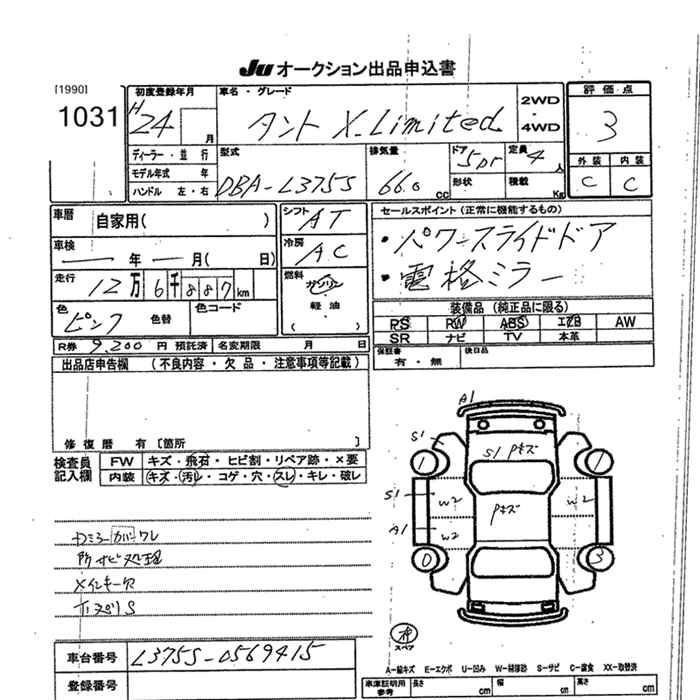 JU オークション出品申込書
[1990]
1031
初度登録年月
H24 月
車名・グレード
タント X-Limited
2WD
・
4WD
評価点
3
外装 内装
C C
ディーラー・並行
モデル年式 年
ハンドル 左・右
型式
DBA-L375S
排気量
660 cc
ドア
5Dr
形状
定員
4 人
積載 Kg
車歴 自家用( )
車検 ー 年 ー 月( 日)
走行 12万6千887km
色 ピンク 色替 色コード
シフト AT
冷房 AC
燃料
ガソリン
・
軽油
( )
セールスポイント(正常に機能するもの)
・パワースライドドア
・電格ミラー
装備品 (純正品に限る)
PS RW ABS エアB AW
SR ナビ TV 本革
保証書
有・無
後日品
R券 9,200 円 預託済 名変期限 月 日
出品店申告欄 (不良内容・欠品・注意事項等記載)
修復歴 有〔箇所 〕
検査員
記入欄
FW キズ・飛石・ヒビ割・リペア跡・×要
内装 キズ・汚れ・コゲ・穴・スレ・キレ・破レ
カバーワレ
所サビ処理
メインキー欠
A1
S1
S1 Pキズ
1 1
S1 W2 W2
Pキズ
A1 W2
0 3
スペア
車台番号 L375S-0569415
登録番号
A-線キズ E-エクボ U-凹み W-補修跡 S-サビ C-腐食 XX-取替済
車庫証明用
参考
長さ cm 幅 cm 高さ cm